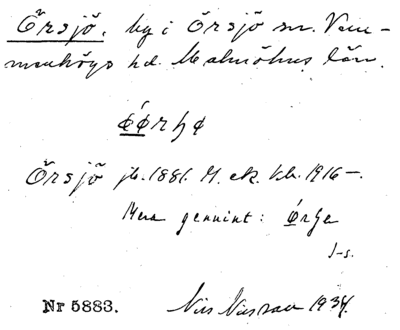 Örsjö, by i Örsjö sn. Vem-
menhögs hd. Malmöhus län.
Örsjö jb. 1881. M. ek. kb. 1916 –.
Mera genuint:
J-s.
Nr 5883. Nils Nilsson 1934.